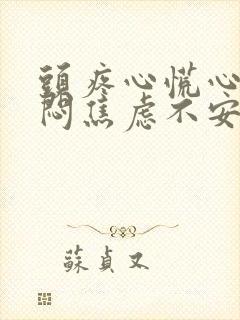 頭疼心慌心
悶焦虑不安
蘇貞又